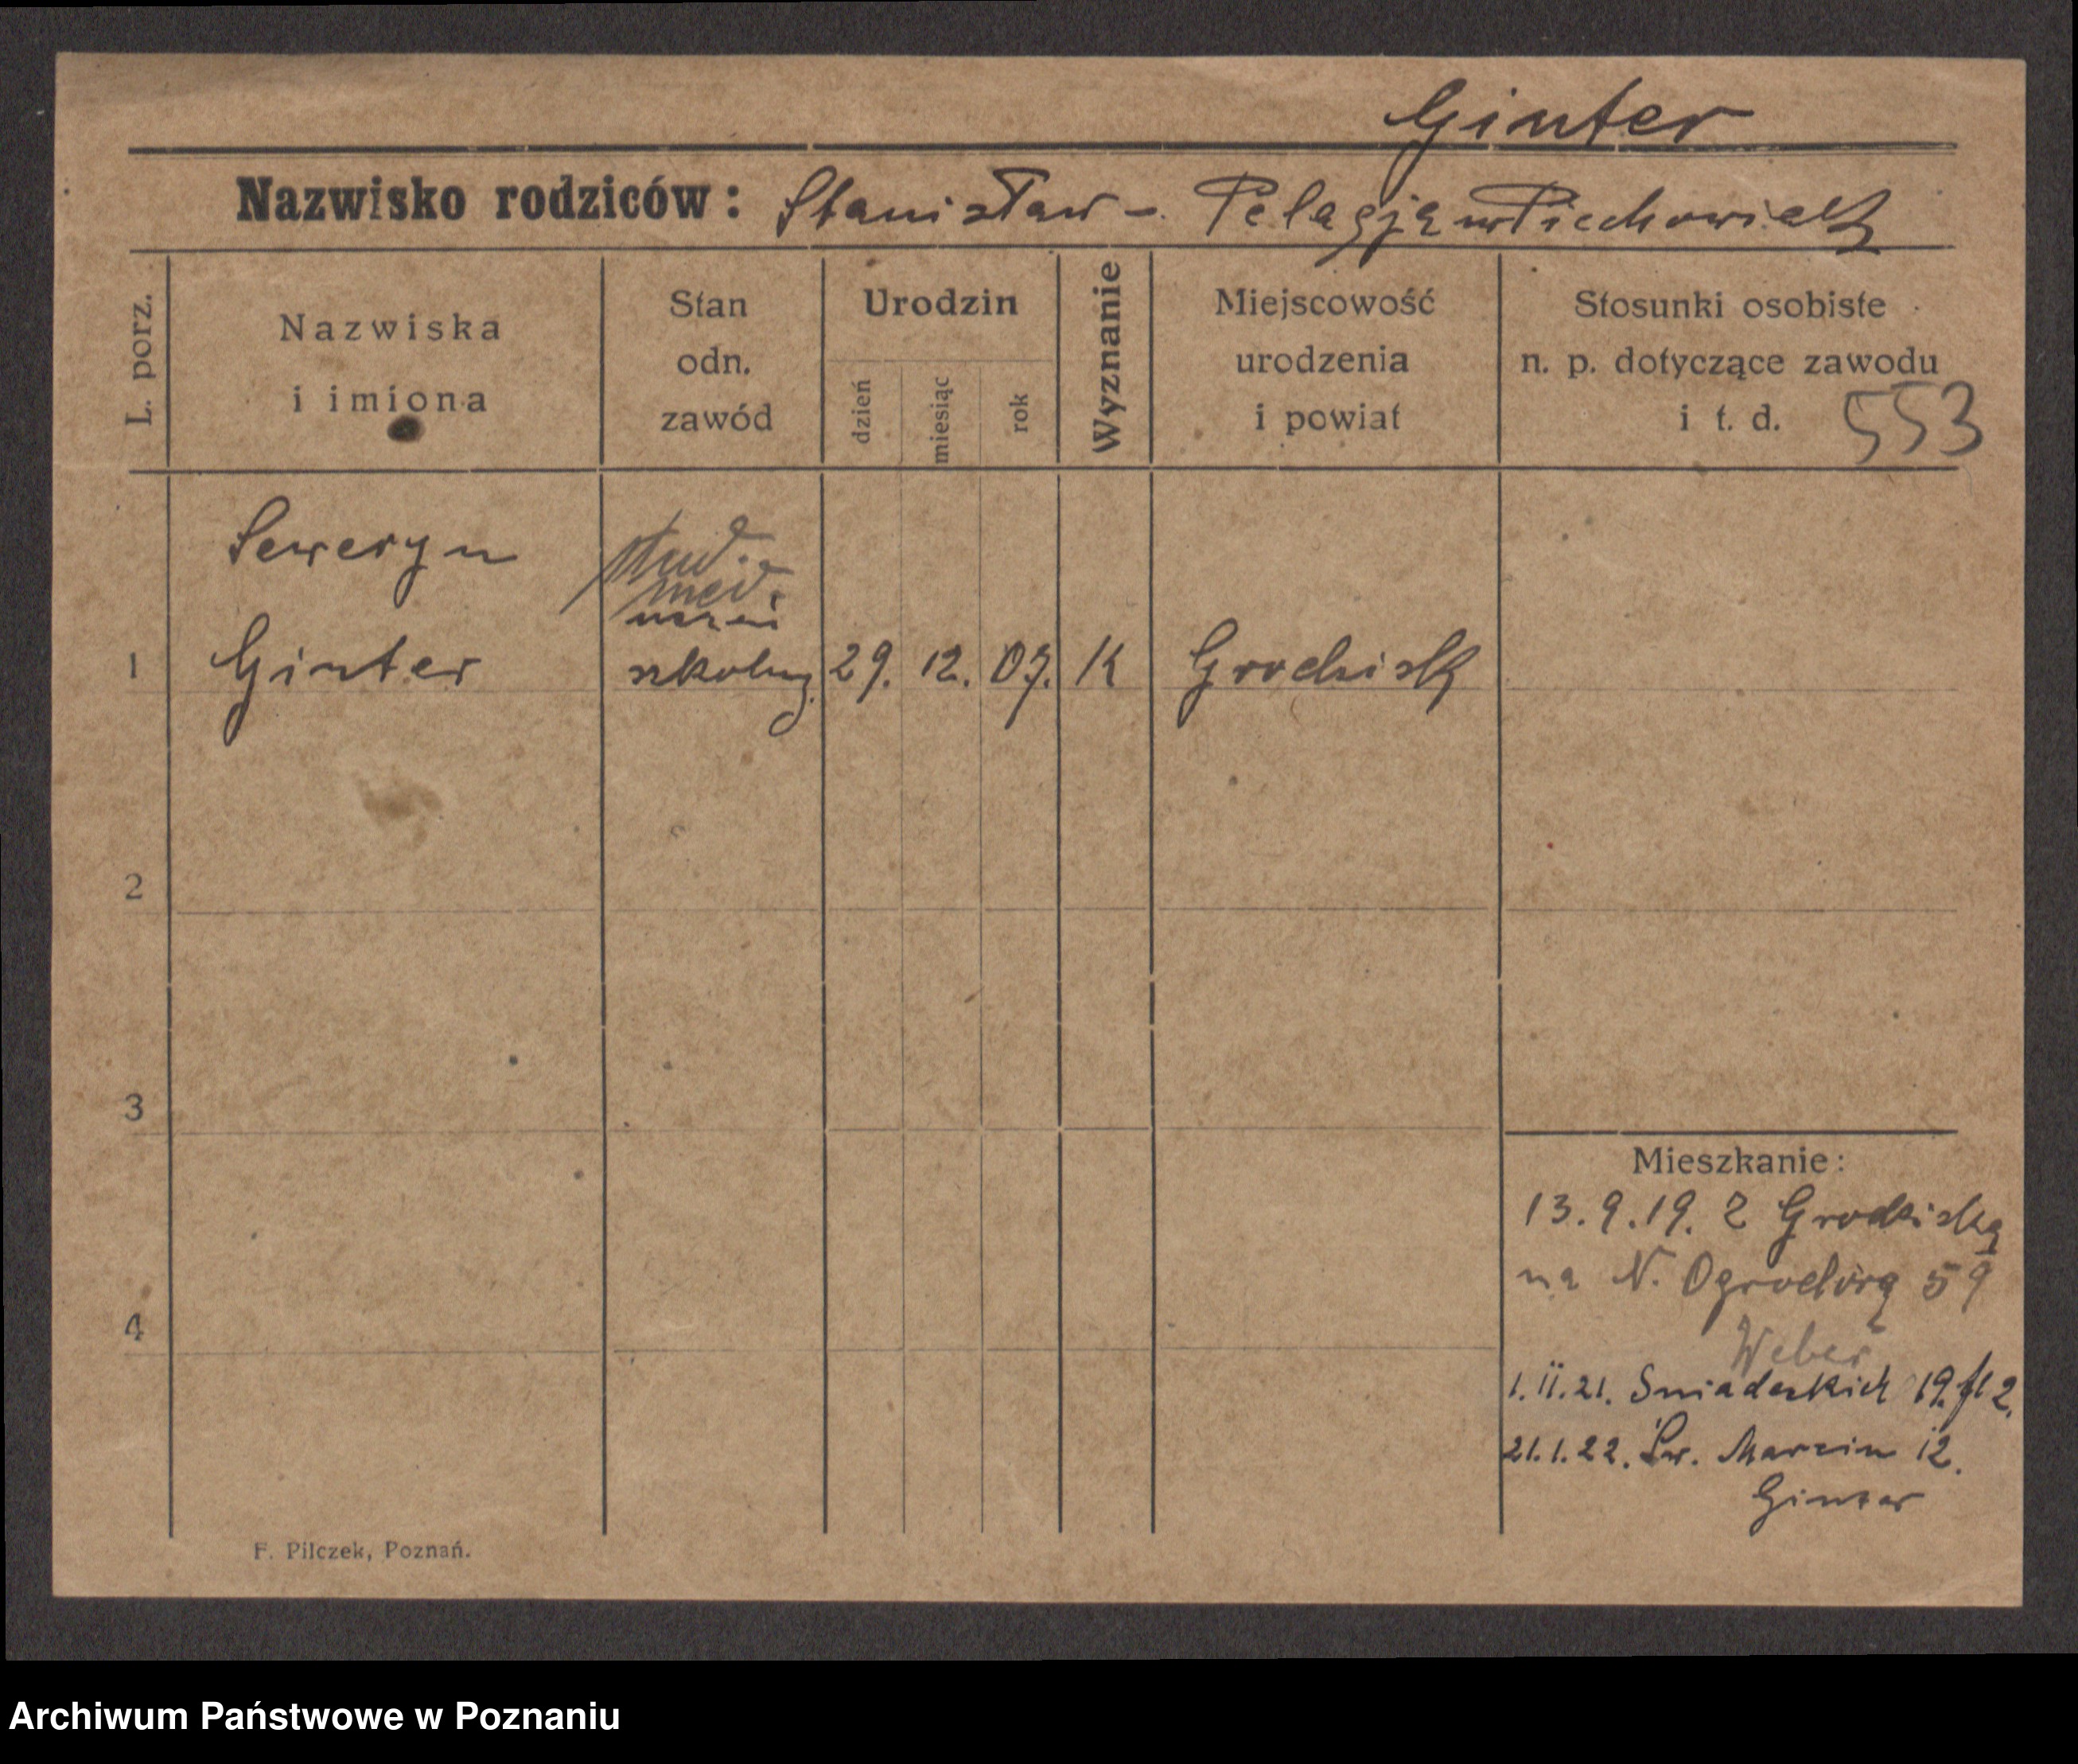 Ginter
Nazwisko rodziców: Stanisław - Pelagja Piechowiak
L. porz.
Nazwiska
i imiona
Stan
odn.
zawód
Urodzin
dzień
miesiąc
rok
Wyznanie
Miejscowość
urodzenia
i powiat
Stosunki osobiste
n. p. dotyczące zawodu
i t. d. 553
Seweryn
stud.
med.
uczeń
1 Ginter szkolny 29. 12. 07. K Grodzisk
2
3
4
Mieszkanie:
13.9.19. z Grodziska
na N. Ogrodową 59
Weber
1. II. 21. Sniadeckich 19. 2.
21.1.22. Św. Marcin 12.
Ginter
F. Pilczek, Poznań.
Archiwum Państwowe w Poznaniu